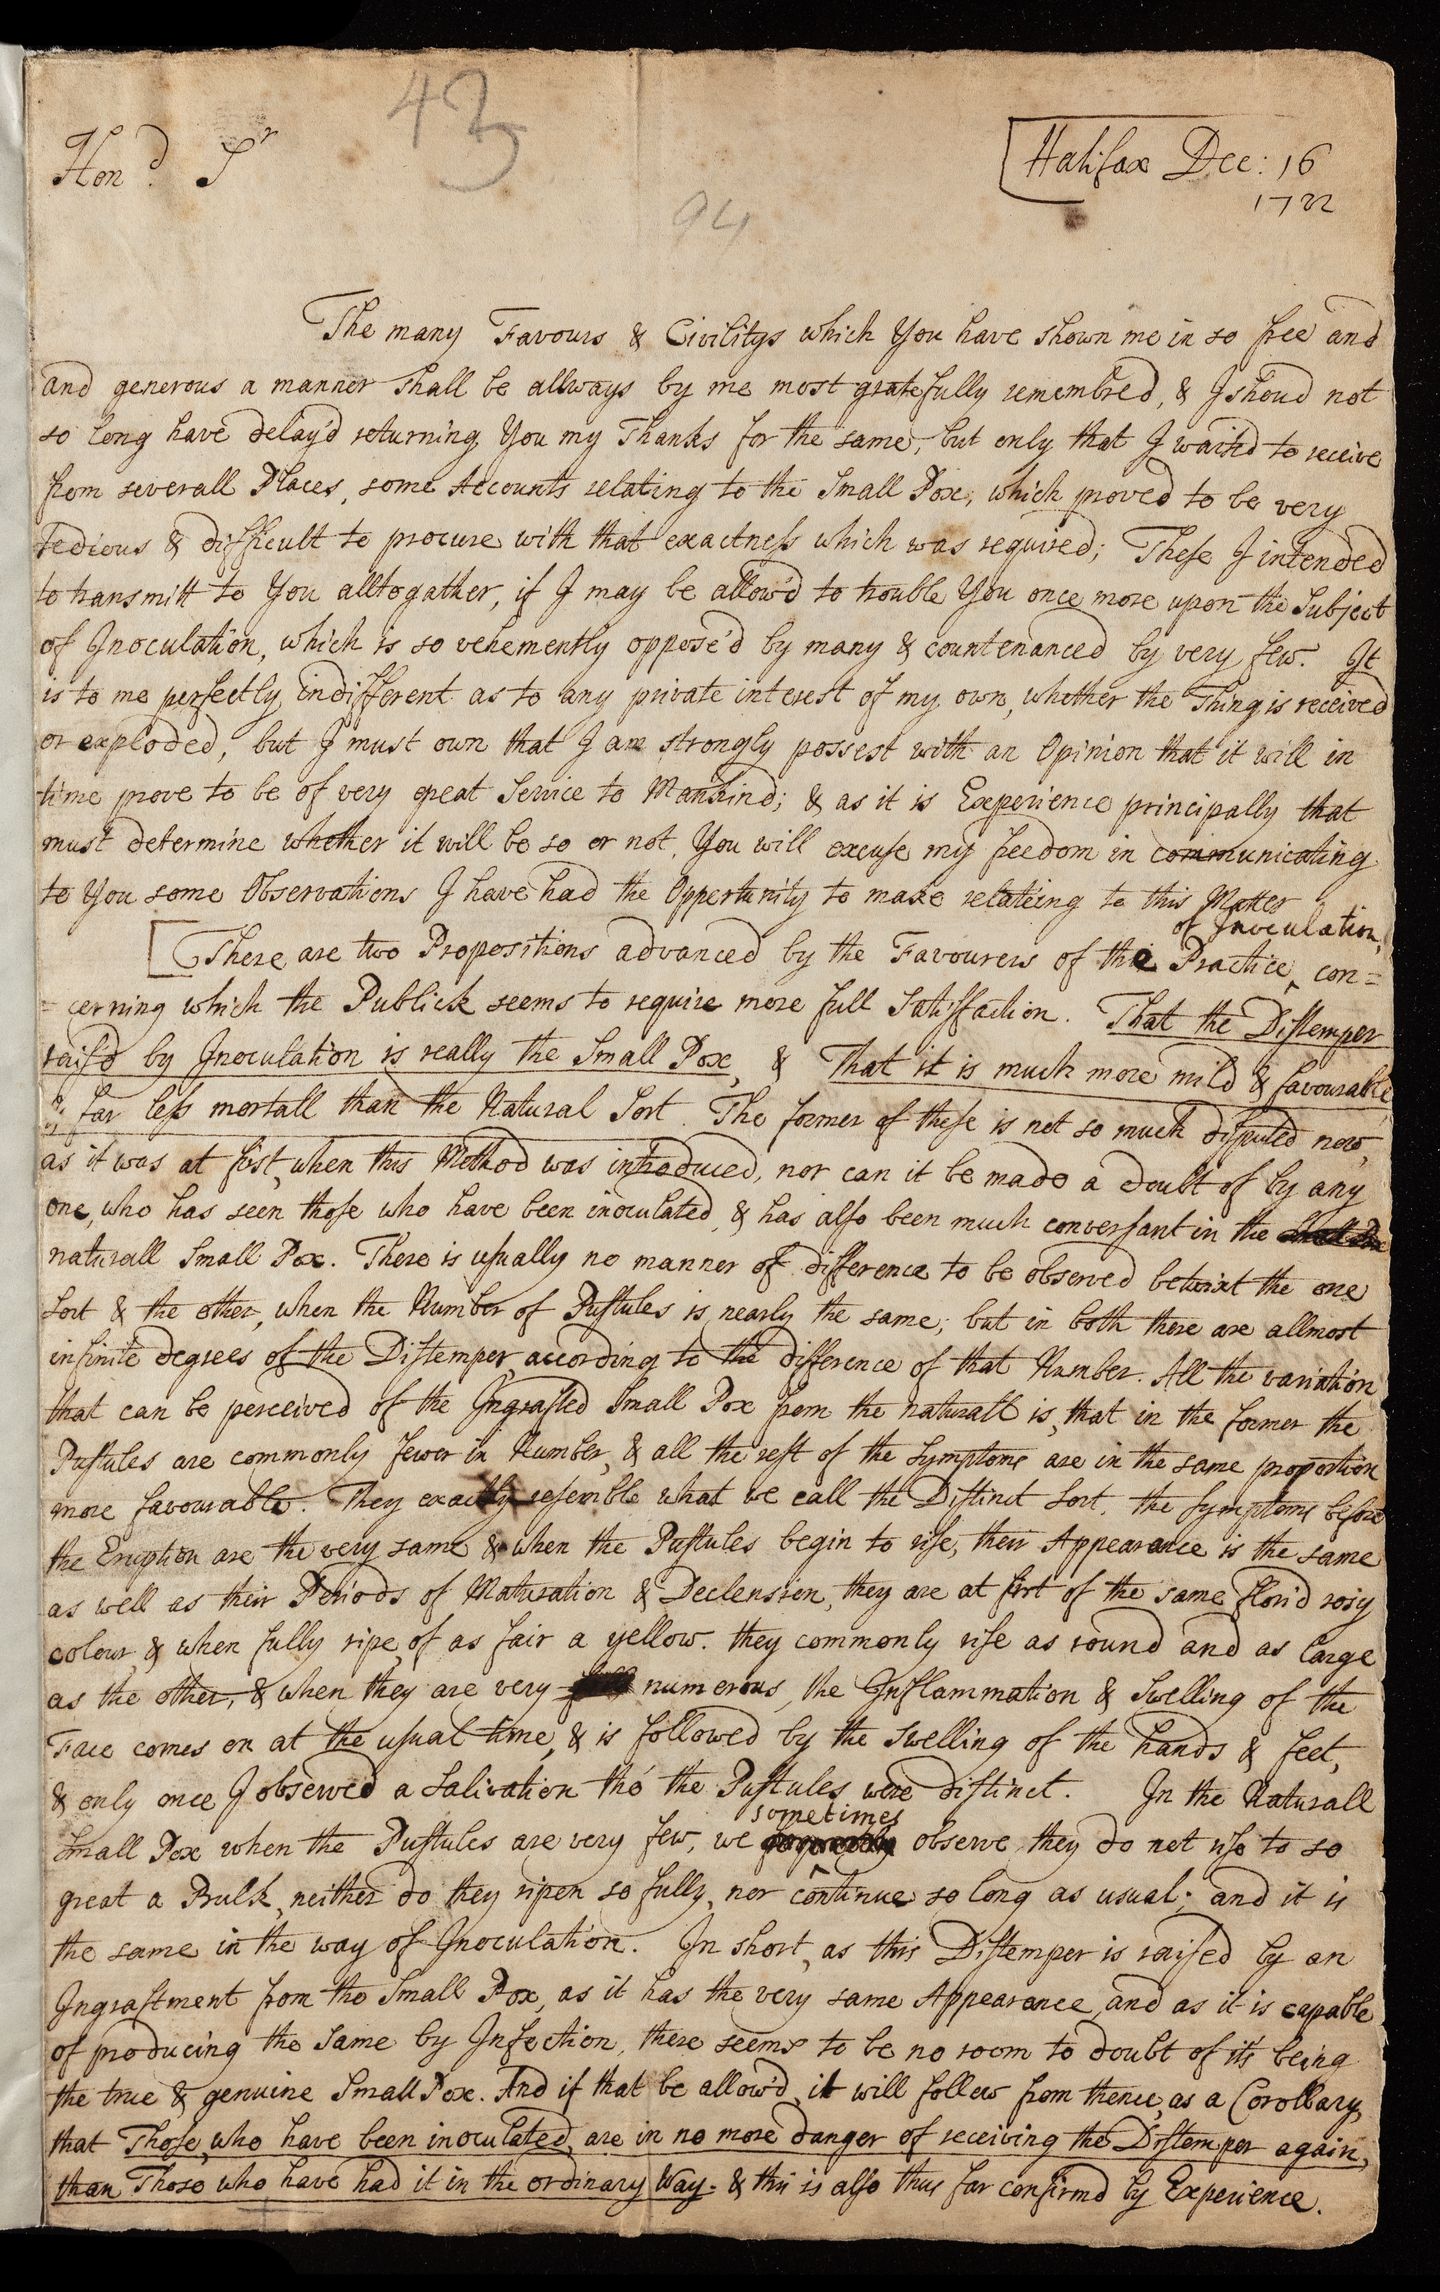 43
Hon.d Sr
Halifax Dec: 16
1722
94
The many Favours & Civilitys which You have shown me in so free and
and generous a manner shall be allways by me most gratefully remembred, & I shoud not
so long have delay'd returning You my Thanks for the same, but only that I waited to receive
from severall Places, some Accounts relating to the Small Pox, which proved to be very
tedious & difficult to procure with that exactness which was required; These I intended
to transmitt to You alltogather, if I may be allow'd to trouble You once more upon the Subject
of Inoculation, which is so vehemently oppose'd by many & countenanced by very few. It
is to me perfectly indifferent as to any private interest of my own, whether the Thing is received
or exploded, but I must own that I am strongly possest with an Opinion that it will in
time prove to be of very great Service to Mankind; & as it is Experience principally that
must determine whether it will be so or not, You will excuse my freedom in communicating
to You some Observations I have had the Oppertunity to make relateing to this Matter
of Inoculation,
There are two Propositions advanced by the Favourers of this Practice, con=
=cerning which the Publick seems to require more full Satisfaction. That the Distemper
rais'd by Inoculation is really the Small Pox, & That it is much more mild & favourable
& far less mortall than the Natural Sort. The former of these is not so much disputed now,
as it was at first, when this Method was introduced, nor can it be made a doubt of by any
one, who has seen those who have been inoculated, & has also been much conversant in the Small Pox
naturall Small Pox. There is usually no manner of difference to be observed betwixt the one
sort & the other, when the Number of Pustules is nearly the same; but in both there are allmost
infinite degrees of the Distemper, according to the difference of that Number. All the variation
that can be perceived of the Ingrafted Small Pox from the naturall is, that in the former the
Pustules are commonly fewer in Number, & all the rest of the symptoms are in the same proportion
more favourable. They exactly resemble what we call the Distinct sort, the symptoms before
the Eruption are the very same & when the Pustules begin to rise, their Appearance is the same
as well as their Periods of Maturation & Declension, they are at first of the same florid rosy
colour, & when fully ripe, of as fair a yellow. they commonly rise as round and as large
as the other, & when they are very full numerous, the Inflammation & Swelling of the
Face comes on at the usual time, & is followed by the swelling of the hands & feet,
& only once I observed a Salivation tho' the Pustules were distinct. In the Naturall
sometimes
Small Pox when the Pustules are very few, we observe they do not rise to so
great a Bulk, neither do they ripen so fully, nor continue so long as usual; and it is
the same in the way of Inoculation. In short, as this Distemper is raised by an
Ingraftment from the Small Pox, as it has the very same Appearance, and as it is capable
of producing the same by Infection, there seems to be no room to doubt of it's being
the true & genuine Small Pox. And if that be allow'd, it will follow from thence, as a Corollary,
that Those, who have been inoculated, are in no more danger of receiving the Distemper again,
than Those who have had it in the ordinary Way. & this is also thus far confirmd by Experience.